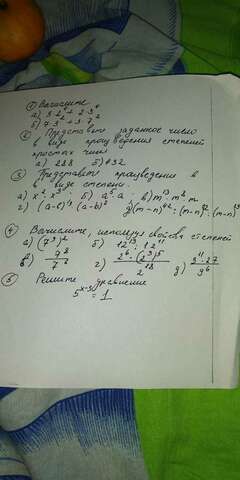 ① Вычислите
а) 3⁴ + 2·3⁴
б) 7·3² + 3·7²
② Представьте заданное число
в виде произведения степеней
простых чисел
а) 288 б) 432
③ Представьте произведение в
в виде степени.
а) x² · x³ б) a⁵ · a · в) m¹³ · m⁸ · m
г) (a-b)¹³ (a-b)² д) (m-n)⁴² : (m-n)¹² : (m-n)¹³
④ Вычислите, используя свойства степеней
а) (7³)² б) 12¹³ : 12¹¹
в) 9⁸ / 7² г) 2⁶ · (2³)⁵ / 2¹⁸ д) 3¹¹ · 27 / 9⁶
⑤ Решите уравнение
5ˣ⁻³ = 1